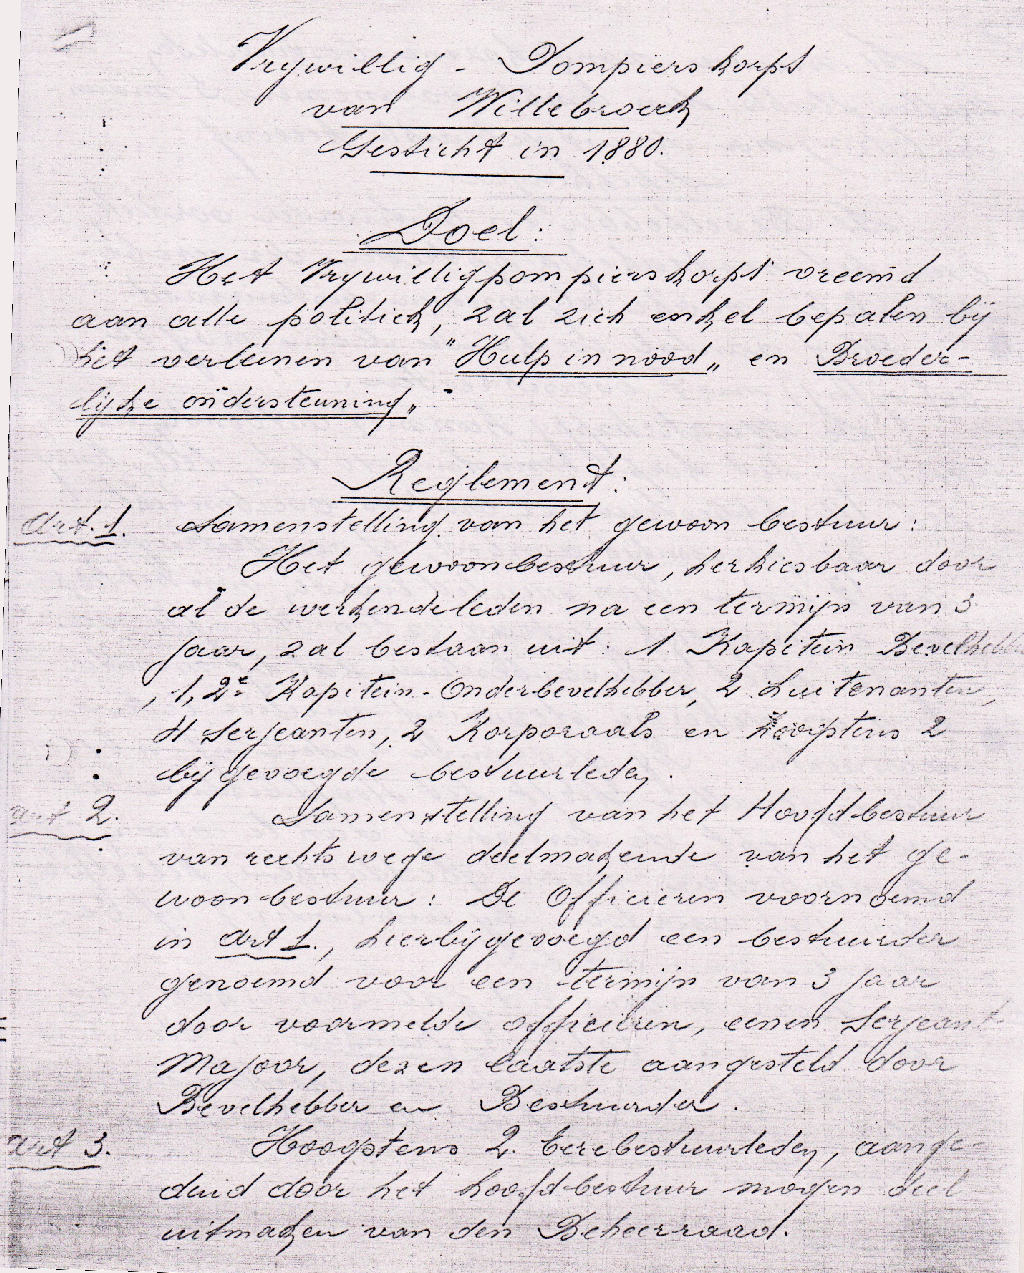 Vrywillig - Pompierskorps
van Willebroeck
Gesticht in 1880.
Doel:
Het Vrywilligpompierskorps vreemd
aan alle politiek, zal zich enkel bepalen bij
het verleenen van "Hulp in nood„ en Broeder-
lijke ondersteuning„
Reglement:
Art. 1. Samenstelling van het gewoon bestuur:
Het gewoonbestuur, herkiesbaar door
al de werkende leden na een termijn van 3
jaar, zal bestaan uit: 1 Kapitein Bevelhebber
, 1, 2e Kapitein-Onderbevelhebber, 2 Luitenanten,
4 Serjeanten, 2 Korporaals en hoogstens 2
bijgevoegde bestuurleden.
art 2. Samenstelling van het Hoofdbestuur
van rechtswege deelmakende van het ge-
woon bestuur: De Officieren voornoemd
in art 1., hierbijgevoegd een bestuurder
genoemd voor een termijn van 3 jaar
door voormelde officieren, eenen Serjeant
Majoor, dezen laatste aangesteld door
Bevelhebber en Bestuurder.
art 3. Hoogstens 2 Eerebestuurleden, aange-
duid door het hoofdbestuur mogen deel
uitmaken van den Beheerraad.